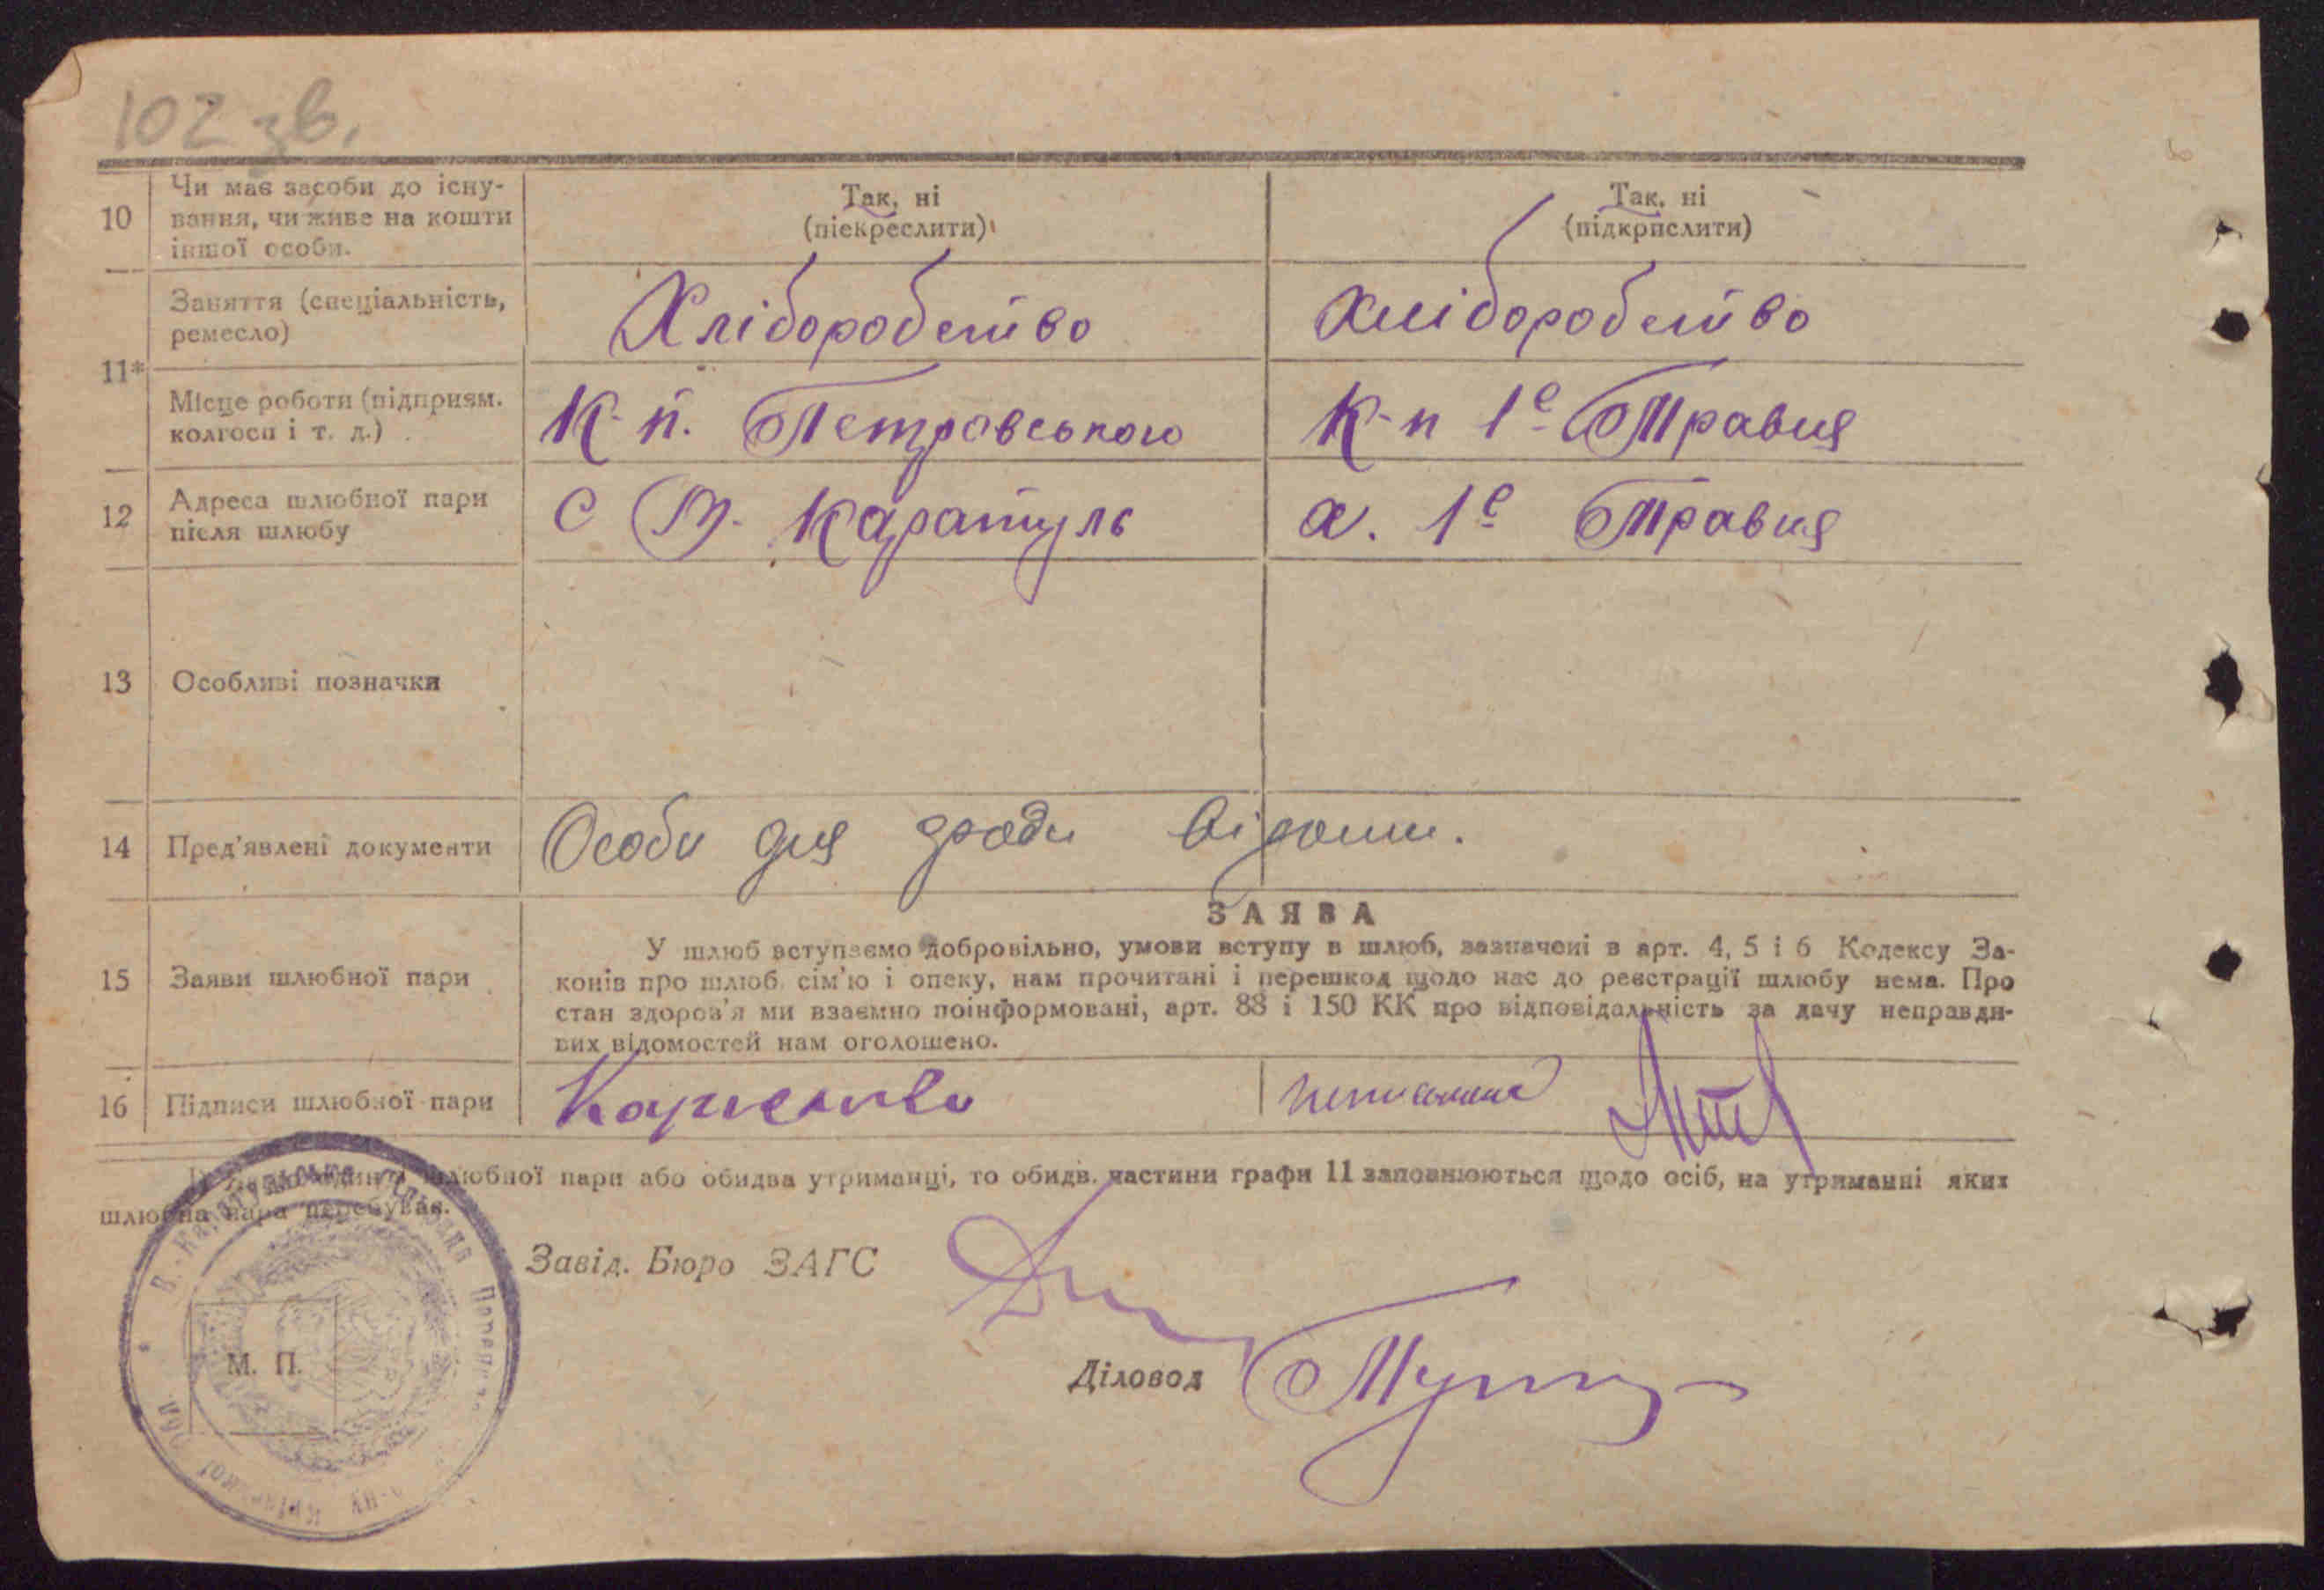 102 зв.
10
Чи має засоби до існу-
вання, чи живе на кошти
іншої особи.
Так, ні
(піекреслити)
Так, ні
(підкрпслити)
11*
Заняття (спеціальність,
ремесло)
Хліборобство
Хліборобство
Місце роботи (підприєм.
колгосп і т. д.)
К-п. Петровського
К-п 1е Травня
12
Адреса шлюбної пари
після шлюбу
С В. Каратуль
х. 1е Травня
13
Особливі позначки
14
Пред'явлені документи
Особи для уряду відомі.
15
Заяви шлюбної пари
ЗАЯВА
У шлюб вступаємо добровільно, умови вступу в шлюб, зазначені в арт. 4, 5 і 6 Кодексу За-
конів про шлюб, сім'ю і опеку, нам прочитані і перешкод щодо нас до реєстрації шлюбу нема. Про
стан здоров'я ми взаємно поінформовані, арт. 88 і 150 КК про відповідальність за дачу неправди-
вих відомостей нам оголошено.
16
Підписи шлюбної пари
неписьменна
шлюбної пари або обидва утриманці, то обидв. частини графи 11 заповнюються щодо осіб, на утриманні яких
шлюбна пара перебуває.
Завід. Бюро ЗАГС
М. П.
Діловод